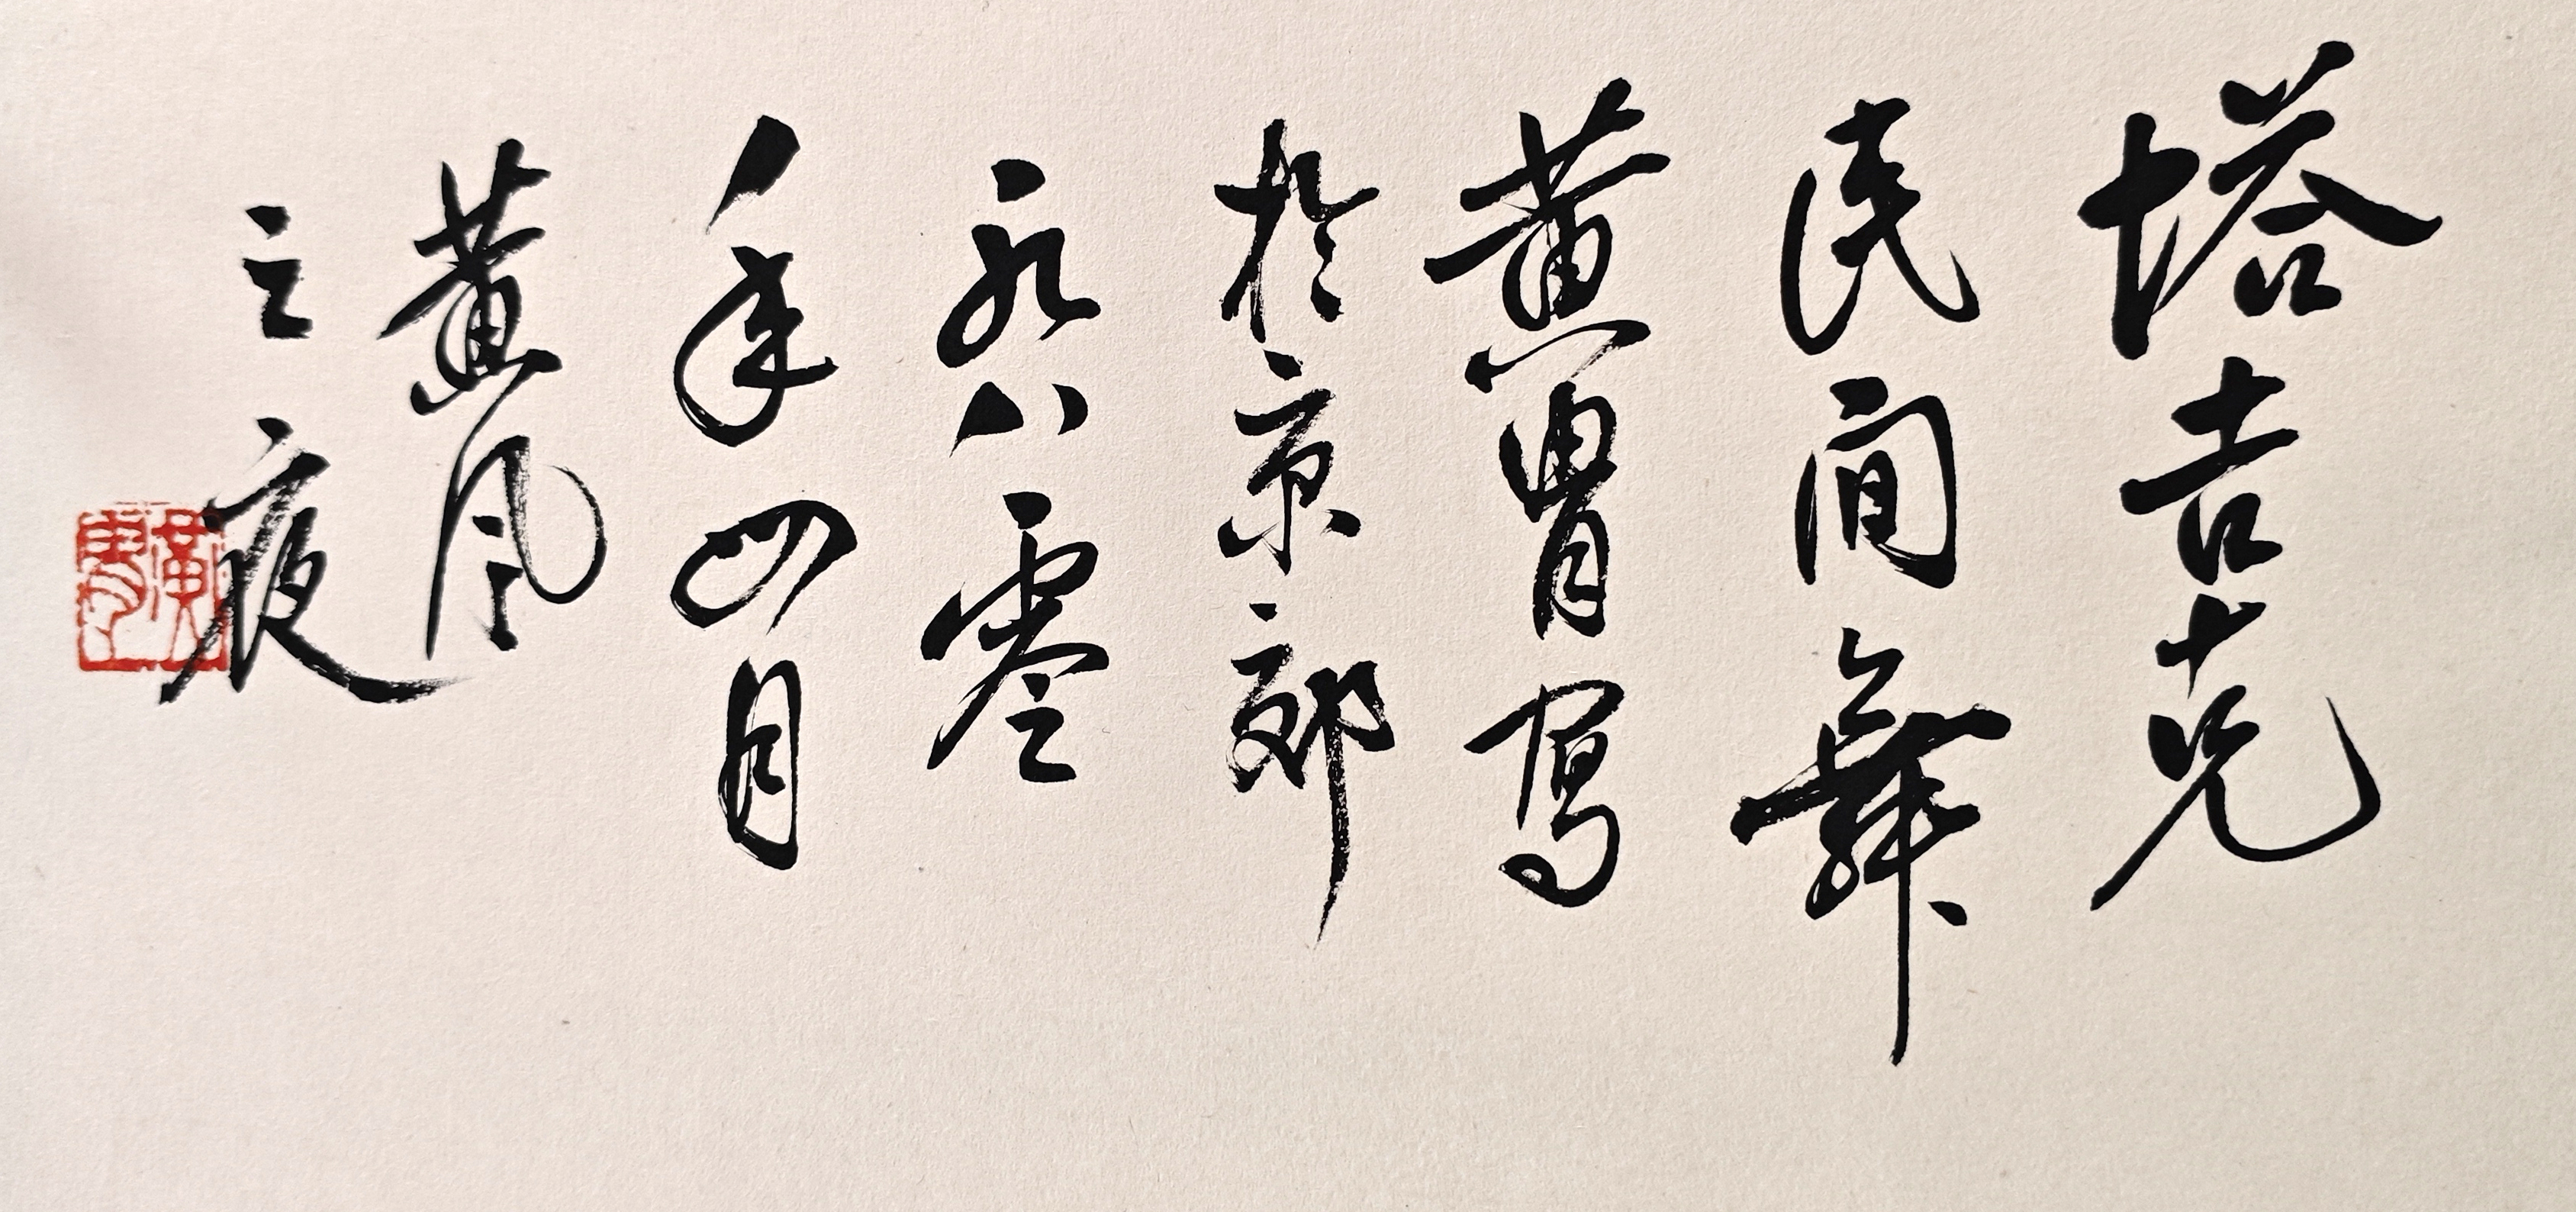 塔吉克
民间舞
黄胄写
於京郊
一九八零
年四月
黄风
之夜
黄胄